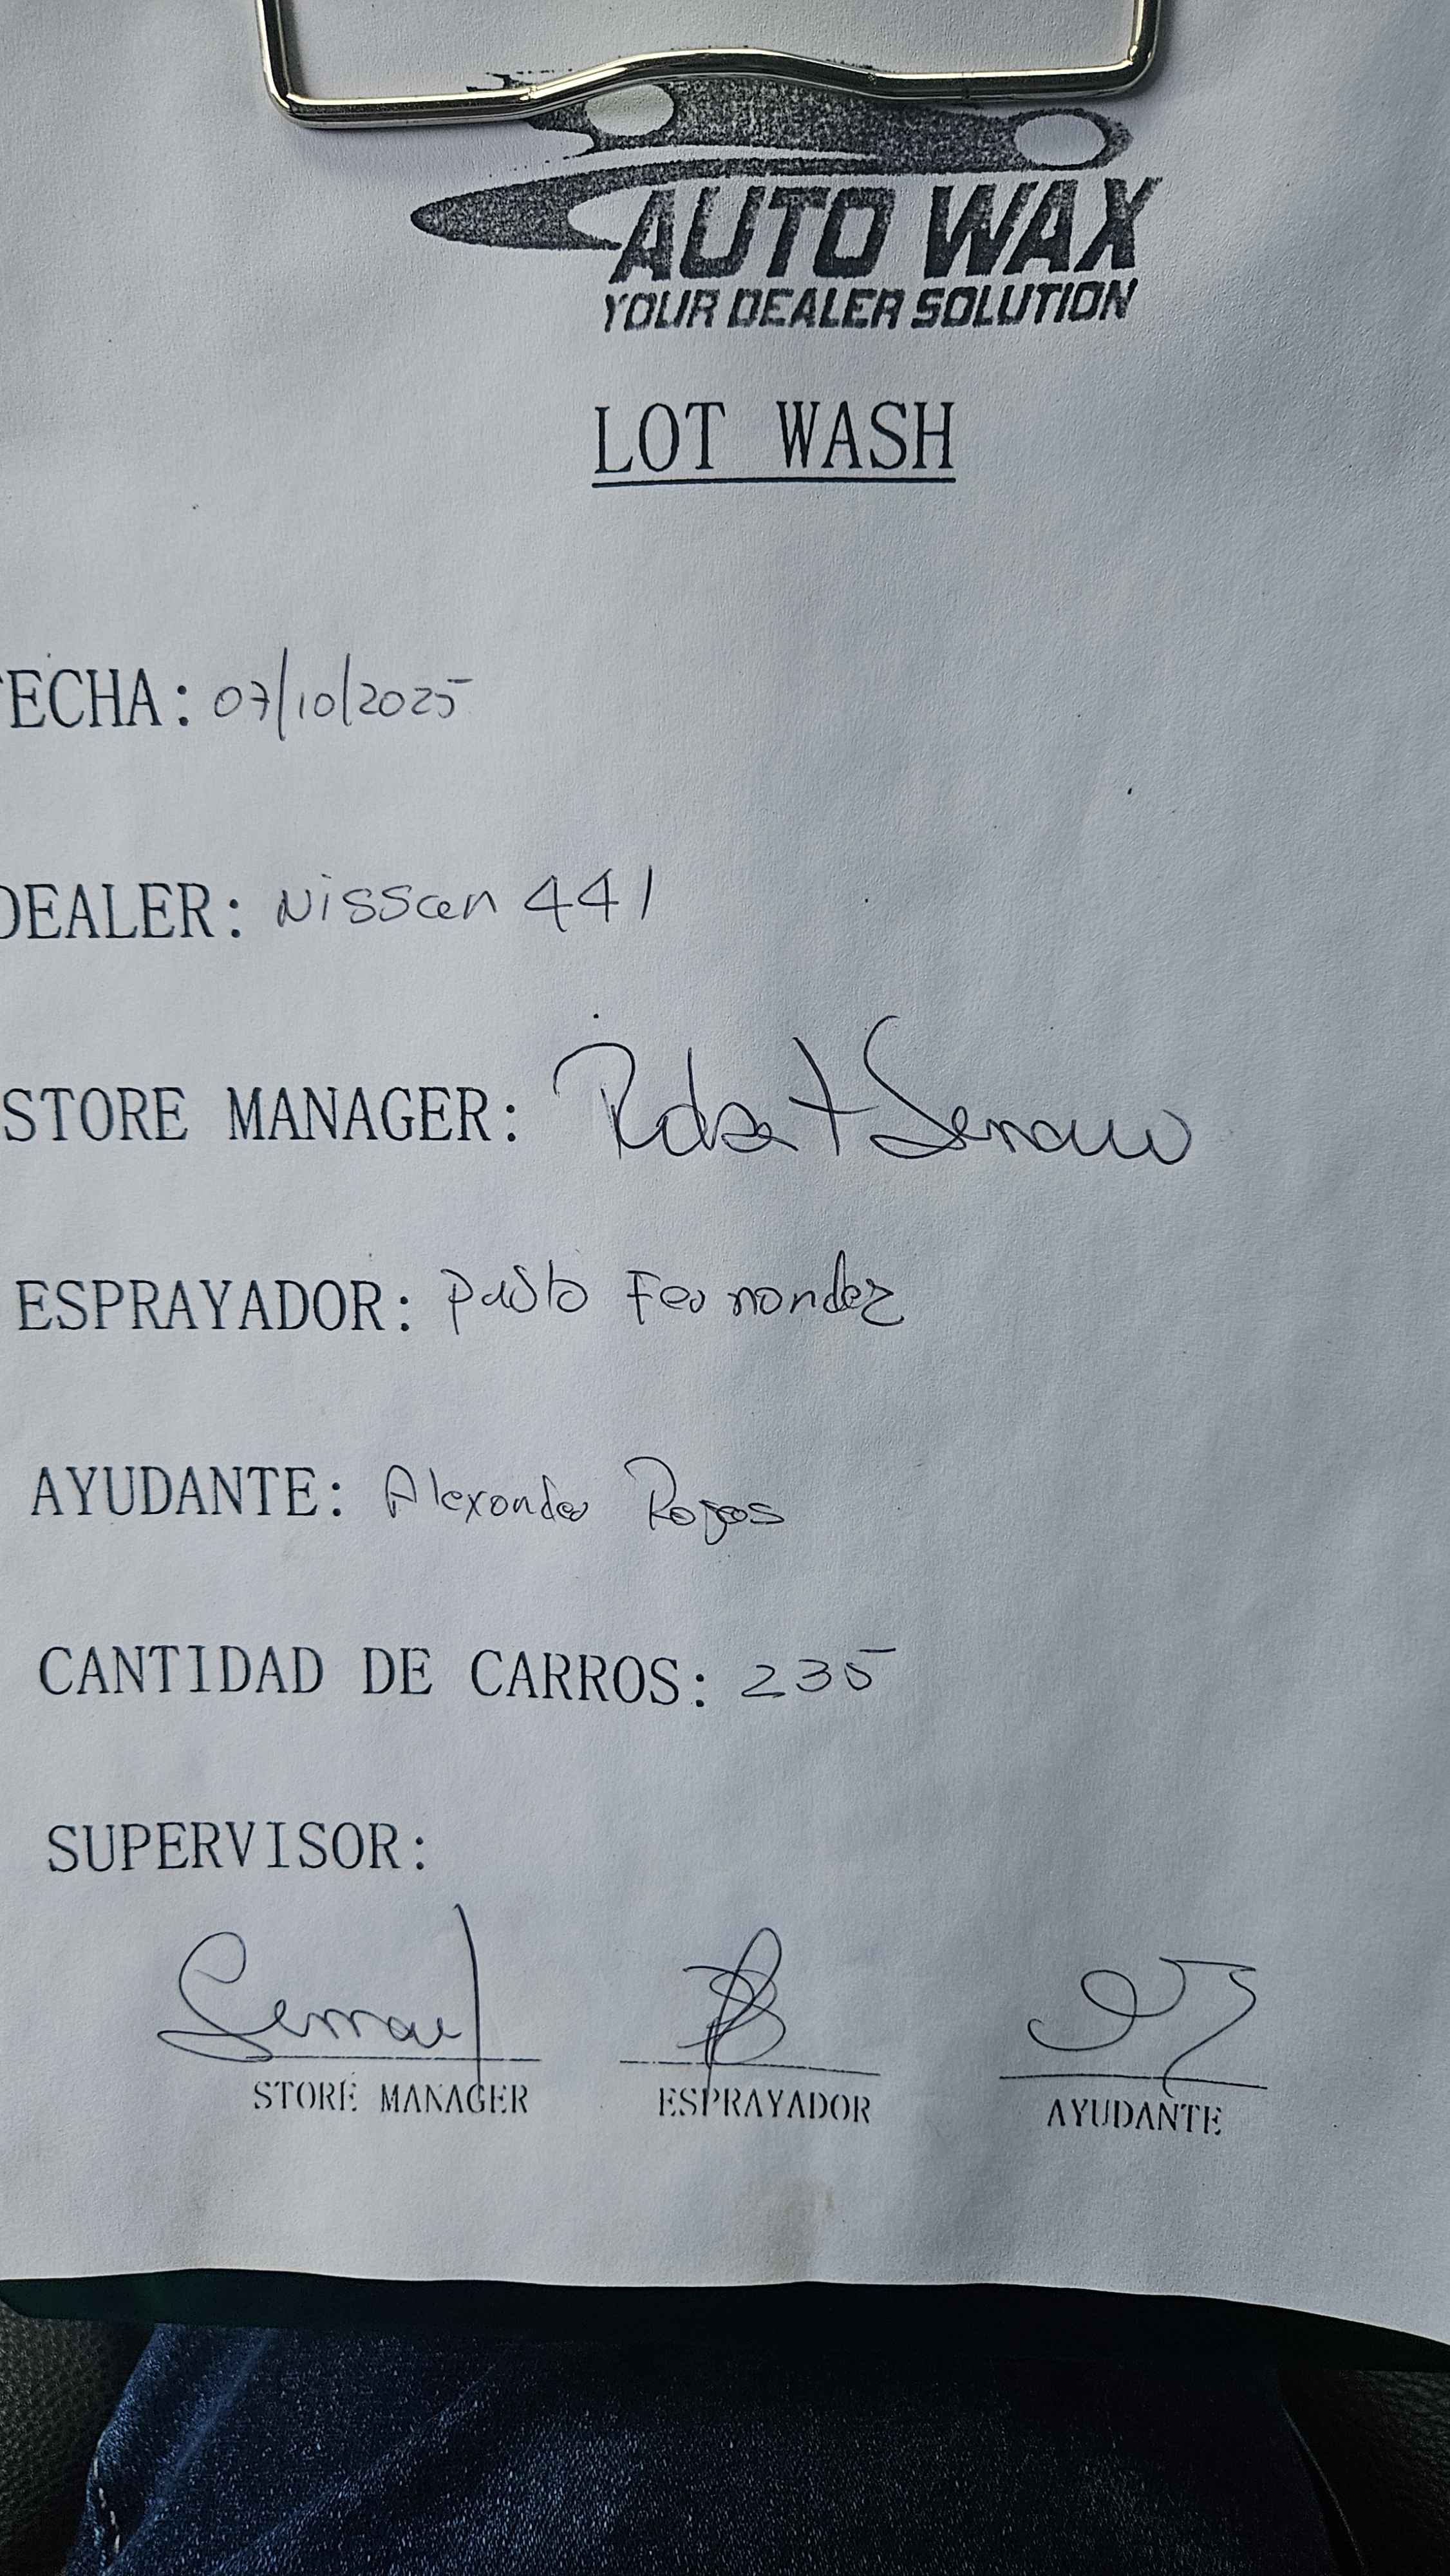 AUTO WAX
YOUR DEALER SOLUTION
LOT WASH
FECHA: 07/10/2025
DEALER: Nissan 441
STORE MANAGER: Robert Serrano
ESPRAYADOR: Pablo Fernandez
AYUDANTE: Alexander Rojas
CANTIDAD DE CARROS: 235
SUPERVISOR:
STORE MANAGER ESPRAYADOR AYUDANTE